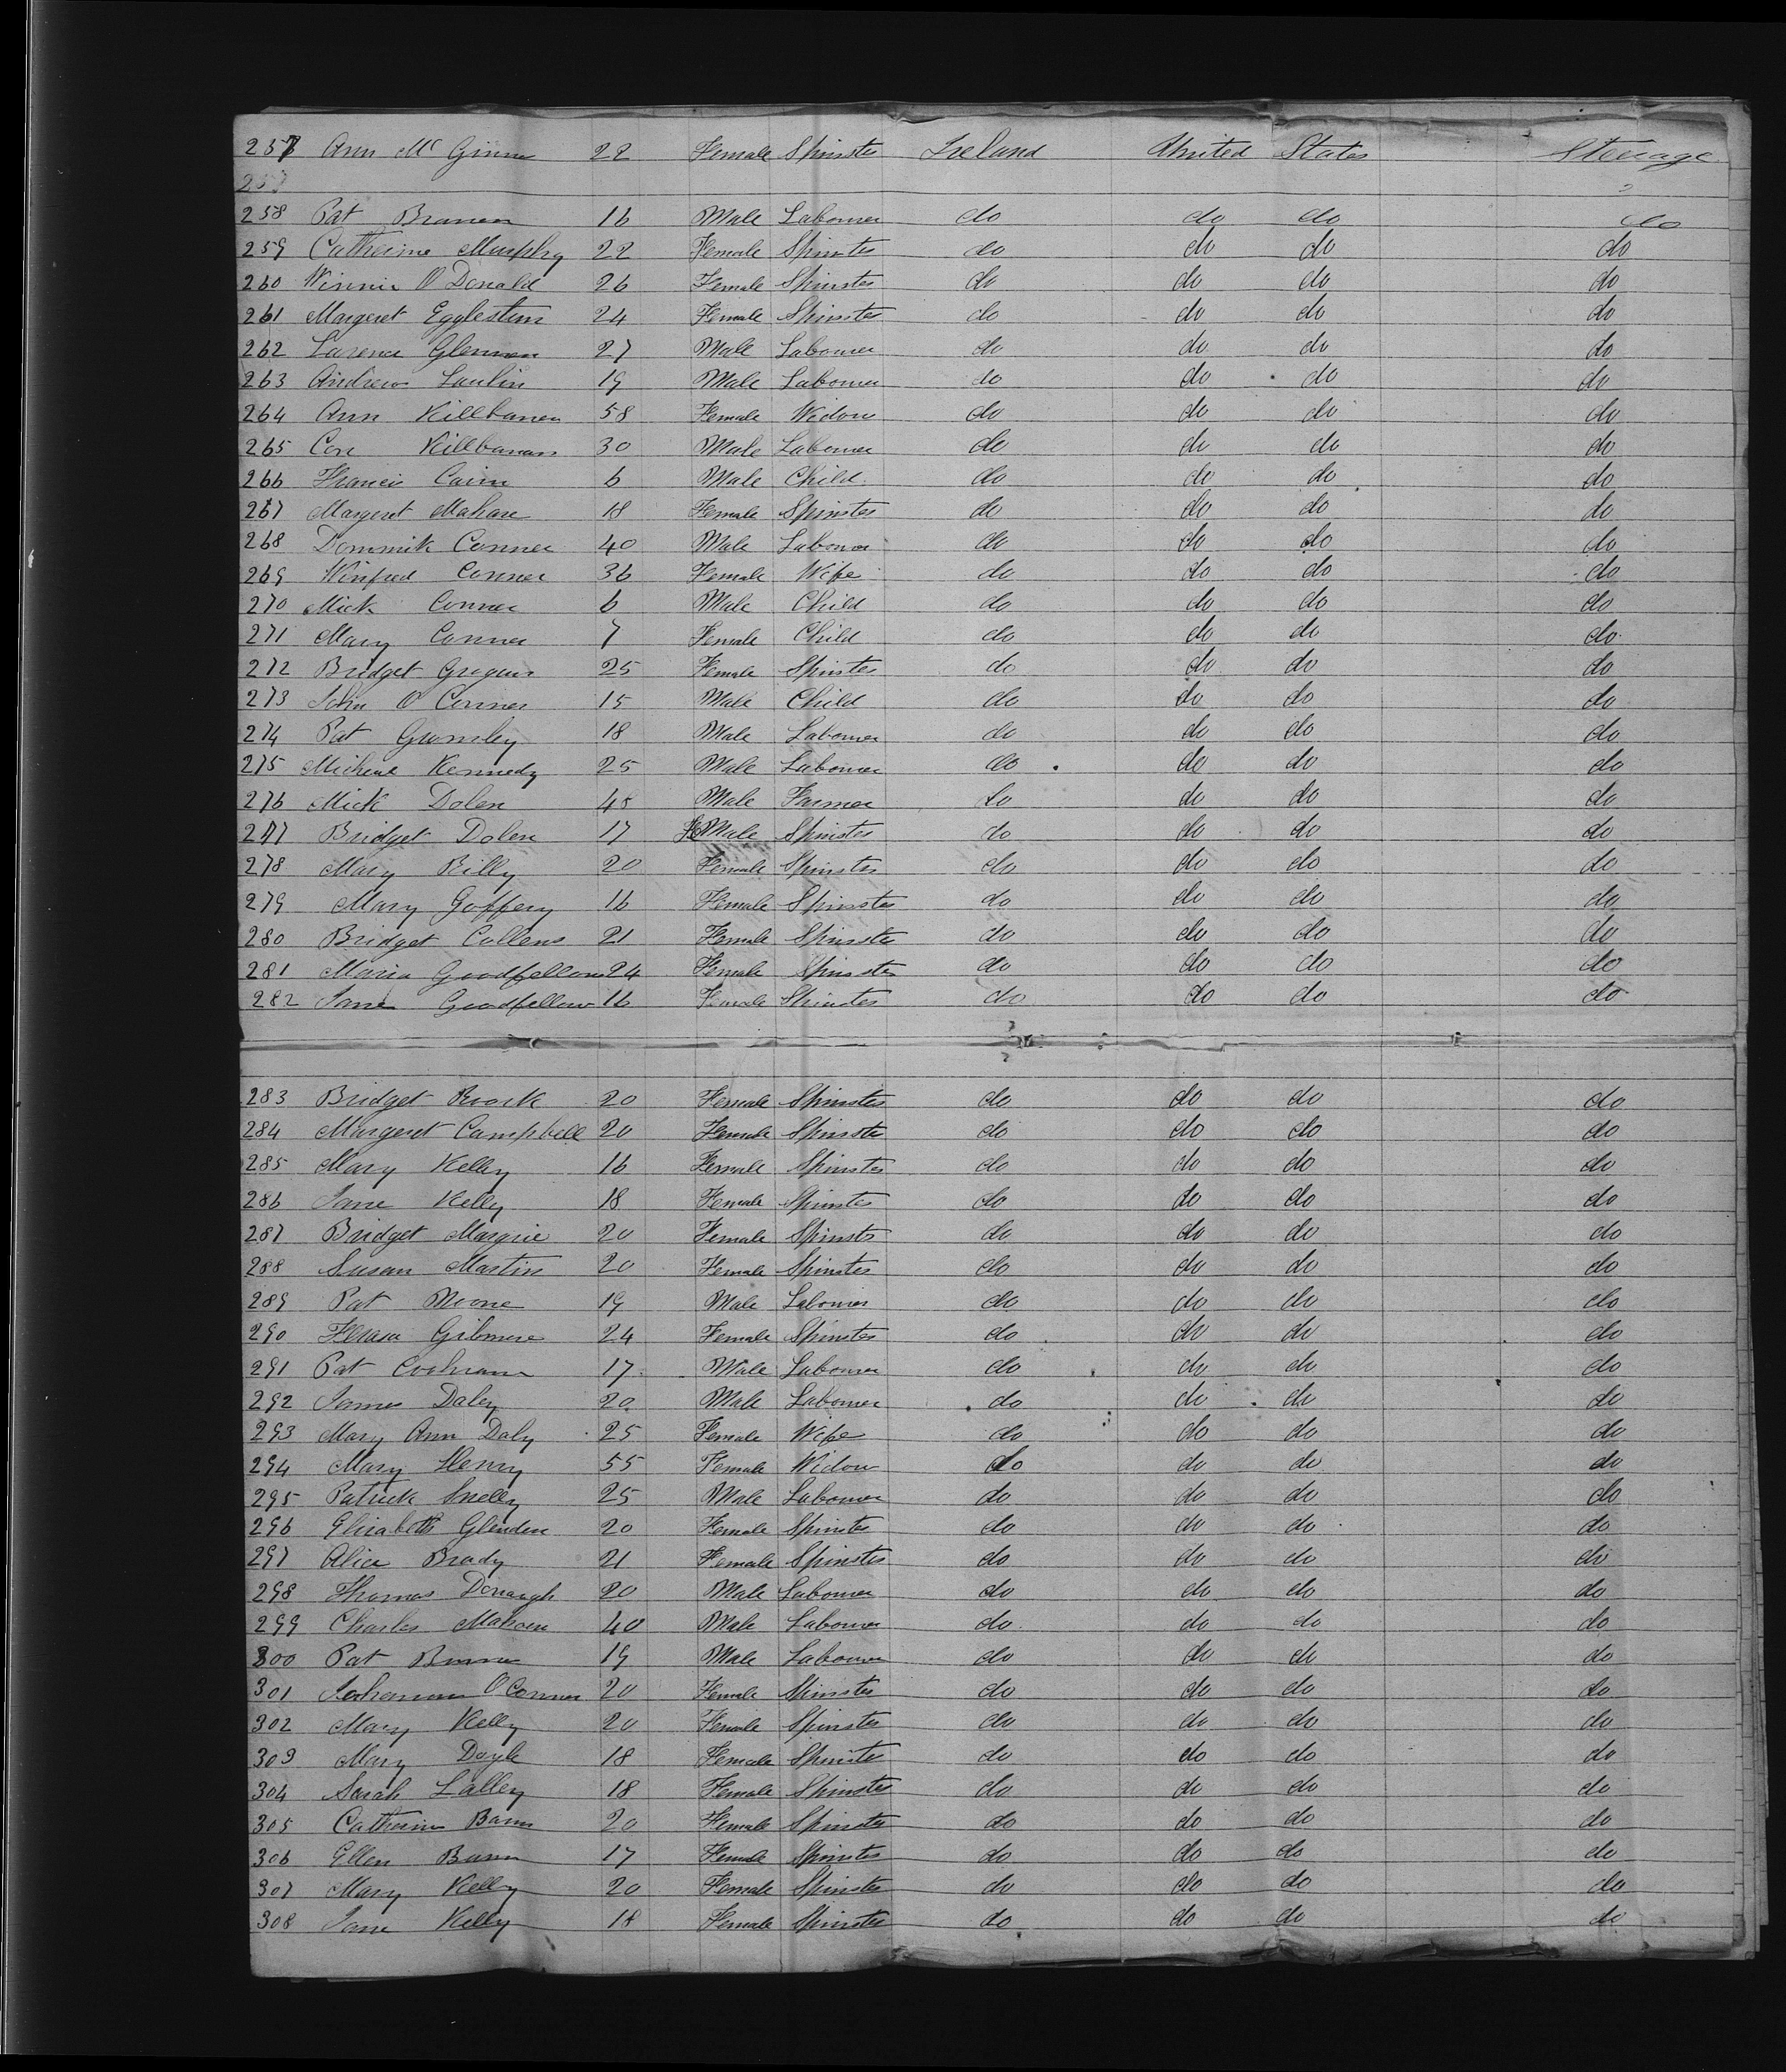 257 Ann Mc Ginn 22 Female Spinster Ireland United States Steerage
257
258 Pat Brannen 16 Male Labourer do do do do
259 Catherine Murphy 22 Female Spinster do do do do
260 Winnie O Donald 26 Female Spinster do do do do
261 Margeret Egglestun 24 Female Spinster do do do do
262 Larence Glennen 27 Male Labourer do do do do
263 Andrew Laulin 19 Male Labourer do do do do
264 Ann Killbanen 58 Female Widow do do do do
265 Con Killbanan 30 Male Labourer do do do do
266 Francis Cairn 6 Male Child do do do do
267 Margeret Mahan 18 Female Spinster do do do do
268 Dommik Conner 40 Male Labourer do do do do
269 Winfred Conner 36 Female Wife do do do do
270 Mick Conner 6 Male Child do do do do
271 Mary Conner 7 Female Child do do do do
272 Bridget 25 Female Spinster do do do do
273 John O Conner 15 Male Child do do do do
274 Pat Gumley 18 Male Labourer do do do do
275 Micheal Kennedy 25 Male Labourer do do do do
276 Mick Dolen 45 Male Farmer do do do do
277 Bridget Dolen 17 FeMale Spinster do do do do
278 Mary Rilly 20 Female Spinster do do do do
279 Mary Goffery 16 Female Spinster do do do do
280 Bridget Collens 21 Female Spinster do do do do
281 Maria Goodfellow 24 Female Spinster do do do do
282 Jane Goodfellow 16 Female Spinster do do do do
283 Bridget Roork 20 Female Spinster do do do do
284 Margeret Campbell 20 Female Spinster do do do do
285 Mary Kelly 16 Female Spinster do do do do
286 Jane Kelly 18 Female Spinster do do do do
287 Bridget Margrie 20 Female Spinster do do do do
288 Susan Martin 20 Female Spinster do do do do
289 Pat Moone 19 Male Labourer do do do do
290 Gibmere 24 Female Spinster do do do do
291 Pat Cochrann 17 Male Labourer do do do do
292 James Daley 20 Male Labourer do do do do
293 Mary Ann Daly 25 Female Wife do do do do
294 Mary Henry 55 Female Widow do do do do
295 Patrick Snelly 25 Male Labourer do do do do
296 Elizabeth Glinden 20 Female Spinster do do do do
297 Alice Brady 21 Female Spinster do do do do
298 Thomas Donaugh 20 Male Labourer do do do do
299 Charles Mahoen 40 Male Labourer do do do do
300 Pat 19 Male Labourer do do do do
301 Johannan O Conner 20 Female Spinster do do do do
302 Mary Kelly 20 Female Spinster do do do do
303 Mary Doyle 18 Female Spinster do do do do
304 Sarah Lalley 18 Female Spinster do do do do
305 Catherine Bann 20 Female Spinster do do do do
306 Ellen Bann 17 Female Spinster do do do do
307 Mary Kelly 20 Female Spinster do do do do
308 Jane Kelly 18 Female Spinster do do do do